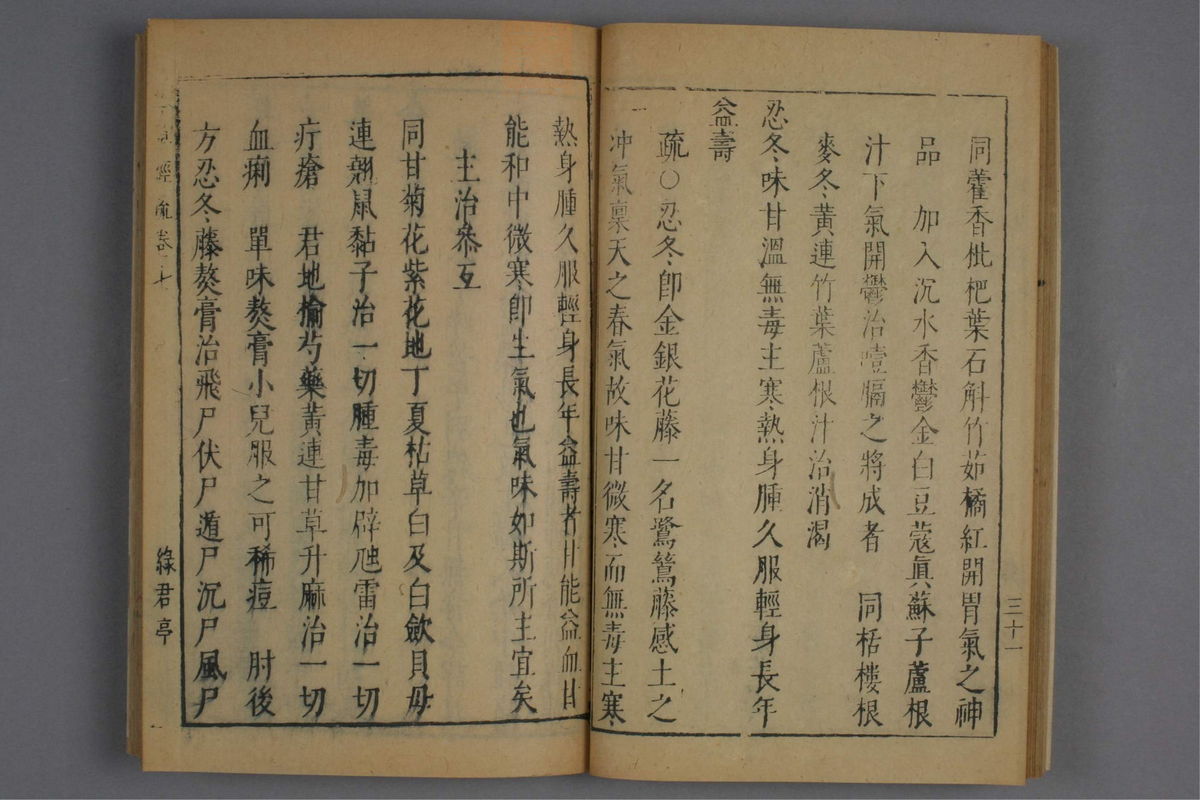 同藿香枇杷葉石斛竹茹橘紅開胃氣之神
品　加入沉水香鬱金白豆蔻眞蘇子蘆根
汁下氣開鬱治噎膈之將成者　同栝樓根
麥冬黃連竹葉蘆根汁治消渴
忍冬味甘溫無毒主寒熱身腫久服輕身長年
益壽
疏○忍冬卽金銀花藤一名鷺鷥藤感土之
冲氣稟天之春氣故味甘微寒而無毒主寒
三十一
熱身腫久服輕身長年益壽者甘能益血甘
能和中微寒卽生氣也氣味如斯所主宜矣
主治叅互
同甘菊花紫花地丁夏枯草白及白歛貝母
連翹鼠黏子治一切腫毒加辟虺雷治一切
疔瘡　君地楡芍藥黃連甘草升麻治一切
血痢　單味熬膏小兒服之可稀痘　肘後
方忍冬藤熬膏治飛尸伏尸遁尸沉尸風尸
經疏卷
綠君亭